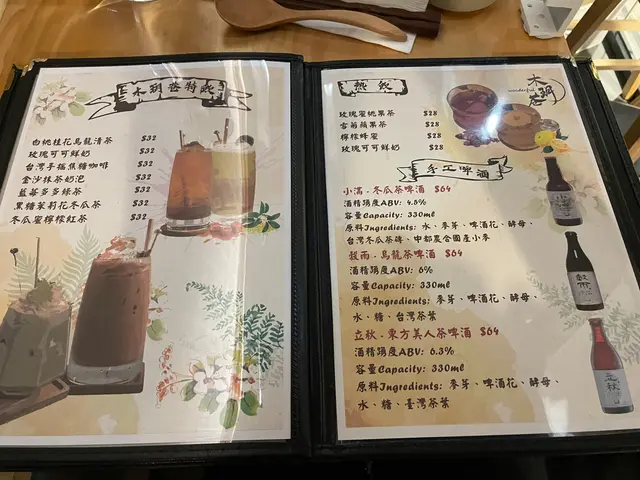 木朔巷特飲
白桃桂花烏龍清茶 $32
玫瑰可可鮮奶 $32
台灣手搖焦糖咖啡 $32
金沙抹茶奶泡 $32
藍莓多多綠茶 $32
黑糖茉莉花冬瓜茶 $32
冬瓜蜜檸檬紅茶 $32
熱飲
玫瑰蜜桃果茶 $28
雪菊蘋果茶 $28
檸檬蜂蜜 $28
玫瑰可可鮮奶 $28
手工啤酒
小滿．冬瓜茶啤酒 $64
酒精強度ABV: 4.5%
容量Capacity: 330ml
原料Ingredients: 水、麥芽、啤酒花、酵母、
台灣冬瓜茶磚、中都農會國產小麥
穀雨．烏龍茶啤酒 $64
酒精強度ABV: 6%
容量Capacity: 330ml
原料Ingredients: 麥芽、啤酒花、酵母、
水、糖、台灣茶葉
立秋．東方美人茶啤酒 $64
酒精強度ABV: 6.3%
容量Capacity: 330ml
原料Ingredients: 麥芽、啤酒花、酵母、
水、糖、臺灣茶葉
穀雨
立秋